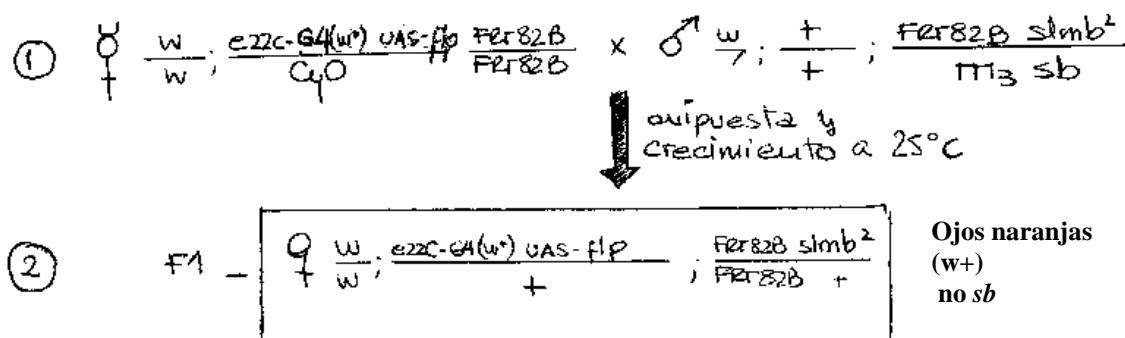 ① ☿ w/w ; e22c-G4(w⁺) UAS-flp/CyO FRT82B/FRT82B x ♂ w/7 ; +/+ ; FRT82B slmb²/TM3 sb
ovipuesta y
crecimiento a 25°C
② F1 - ♀ w/w ; e22c-G4(w⁺) UAS-flp/+ ; FRT82B slmb²/FRT82B +
Ojos naranjas
(w+)
no sb